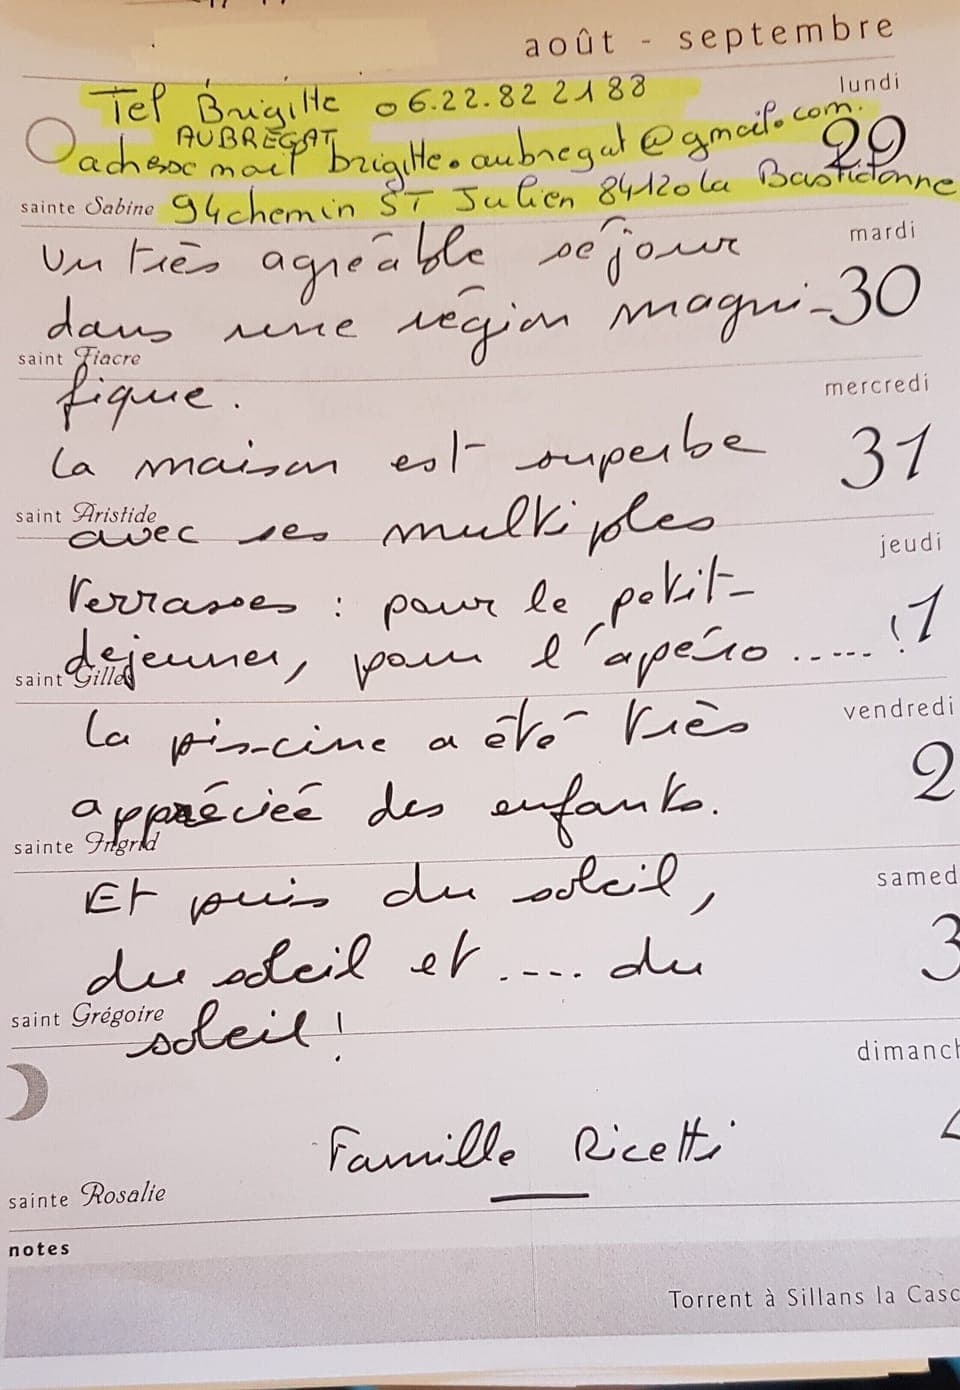 août - septembre
lundi
Tel Brigitte 06.22.82 21 88
AUBREGAT
adresse mail brigitte.aubregat@gmail.com.
29
sainte Sabine 94 chemin ST Julien 84120 la Bastidonne
mardi
Un très agréable séjour
dans une région magni- 30
saint Fiacre
fique.
mercredi
La maison est superbe 31
saint Aristide
avec ses multiples
jeudi
terrasses : pour le petit-
1
déjeuner, pour l'apéro ..... !
saint Gilles
vendredi
La piscine a été très
2
appréciée des enfants.
sainte Ingrid
samed
Et puis du soleil,
3
du soleil et .... du
saint Grégoire
soleil !
dimanch
Famille Ricetti
sainte Rosalie
notes
Torrent à Sillans la Casc